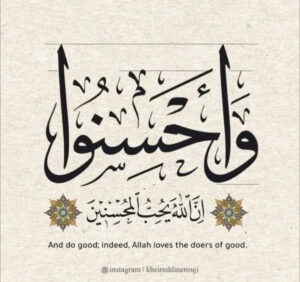 وَأَحْسِنُوا
إِنَّ اللَّهَ يُحِبُّ الْمُحْسِنِينَ
And do good; indeed, Allah loves the doers of good.
instagram : kheireddinerougi